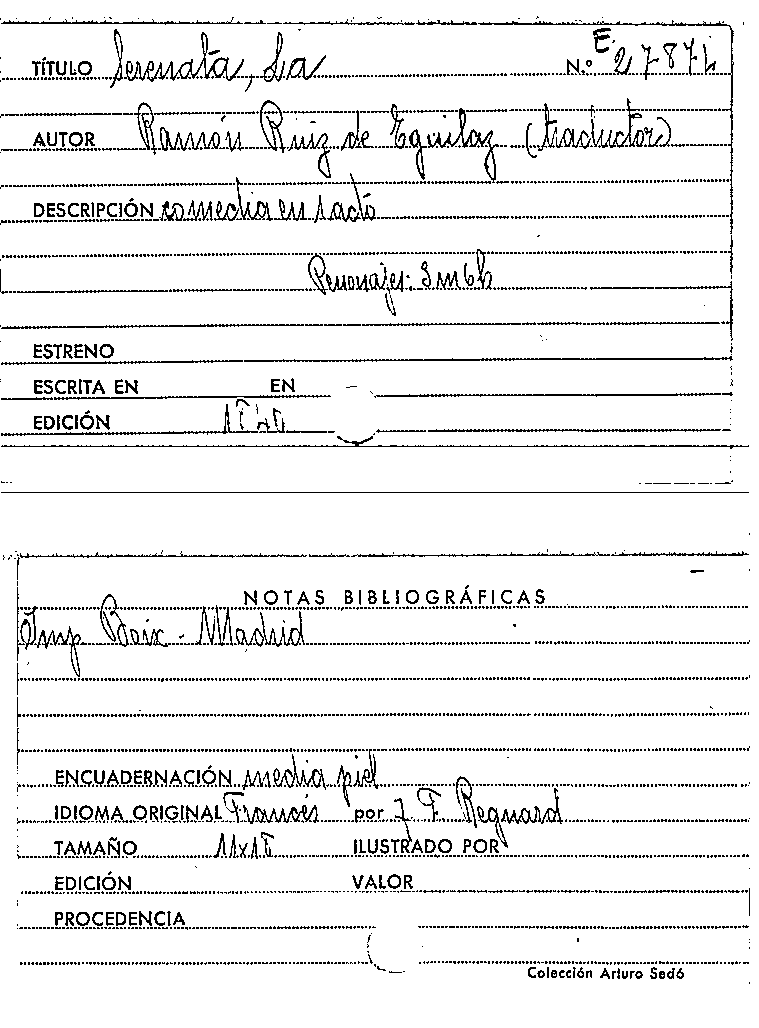 TÍTULO Serenata, La N.º E. 27871
AUTOR Ramón Ruiz de Eguilaz (traductor)
DESCRIPCIÓN comedia en 1 acto
Personajes: 3 m 6 h
ESTRENO
ESCRITA EN EN
EDICIÓN
NOTAS BIBLIOGRÁFICAS
Imp Boix - Madrid
ENCUADERNACIÓN media piel
IDIOMA ORIGINAL Francés por J. F. Regnard
TAMAÑO ILUSTRADO POR
EDICIÓN VALOR
PROCEDENCIA
Colección Arturo Sedó